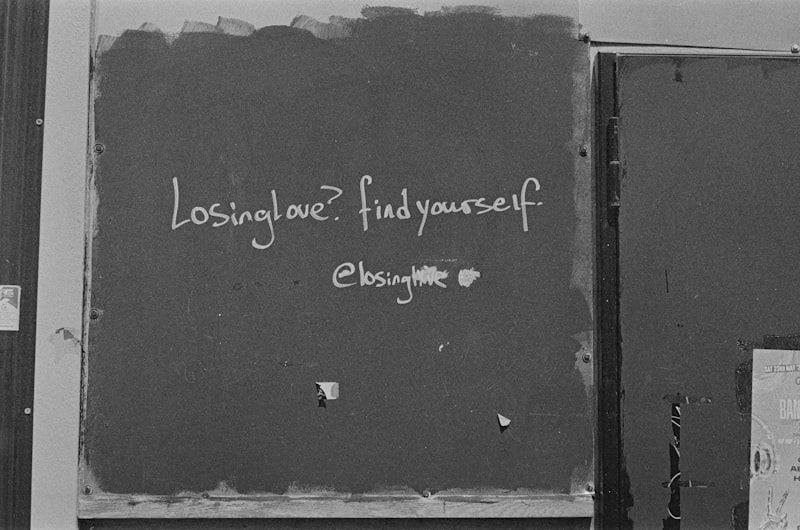 Losinglove? find yourself.
@losing
SAT 23RD MAY
BAN